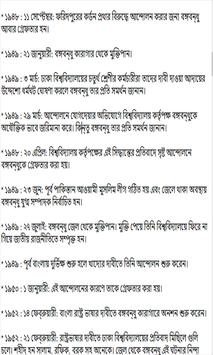 * ১৯৪৮ : ১১ সেপ্টেম্বর: ফরিদপুরের কর্ডন প্রথার বিরুদ্ধে আন্দোলন করার জন্য বঙ্গবন্ধু
আবার গ্রেফতার হন।
* ১৯৪৯ : ২১ জানুয়ারী: বঙ্গবন্ধু কারাগার থেকে মুক্তিপান।
* ১৯৪৯ : ৩ মার্চ: ঢাকা বিশ্ববিদ্যালয়ের চতুর্থ শ্রেণীর কর্মচারীরা তাদের দাবী দাওয়া আদায়ের
উদ্দেশ্যে ধর্মঘট ঘোষণা করলে বঙ্গবন্ধু তার প্রতি সমর্থন জানান।
* ১৯৪৯ : ২৯ মার্চ: আন্দোলনে যোগদেয়ার অভিযোগে বিশ্ববিদ্যালয় কর্তৃপক্ষ বঙ্গবন্ধুকে
অযৌক্তিক ভাবে জরিমানা করে। কিন্তু বঙ্গবন্ধু তার প্রতি সমর্থন জানান।
* ১৯৪৯ : ২০ এপ্রিল: বিশ্ববিদ্যালয় কর্তৃপক্ষের এই সিদ্ধান্তের প্রতিবাদে সৃষ্ট আন্দোলনে
বঙ্গবন্ধুকে গ্রেফতার করা হয়।
* ১৯৪৯ : ২৩ জুন: পূর্ব পাকিস্তান আওয়ামী মুসলিম লীগ গঠিত হয় এবং জেলে থাকা অবস্থায়
বঙ্গবন্ধু যুগ্ম সম্পাদক নির্বাচিত হন।
* ১৯৪৯ : ২৯ জুলাই: বঙ্গবন্ধু জেল থেকে মুক্তিপান। মুক্তি পেয়ে তিনি বিশ্ববিদ্যালয়ে ফিরে না
গিয়ে জাতীয় রাজনীতিতে সম্পৃক্ত হন।
* ১৯৪৯ : পূর্ব বাংলায় দুর্ভিক্ষ শুরু হলে খাদ্যের দাবীতে তিনি আন্দোলন শুরু করেন।
* ১৯৫০ : ১ জানুয়ারী: এই আন্দোলনের কারণে তাকে গ্রেফতার করা হয়।
* ১৯৫২ : ১৪ ফেব্রুয়ারী: বাংলা রাষ্ট্রভাষার দাবীতে বঙ্গবন্ধু কারাগারে অনশন শুরু করেন।
* ১৯৫২ : ২১ ফেব্রুয়ারী: রাষ্ট্রভাষার দাবীতে ঢাকা বিশ্ববিদ্যালয়ের প্রতিবাদ মিছিলে গুলি
চলে। শহীদ হন সালাম, রফিক, বরকত সহ অনেকে। জেল থেকে বঙ্গবন্ধু এই ঘটনার নিন্দা